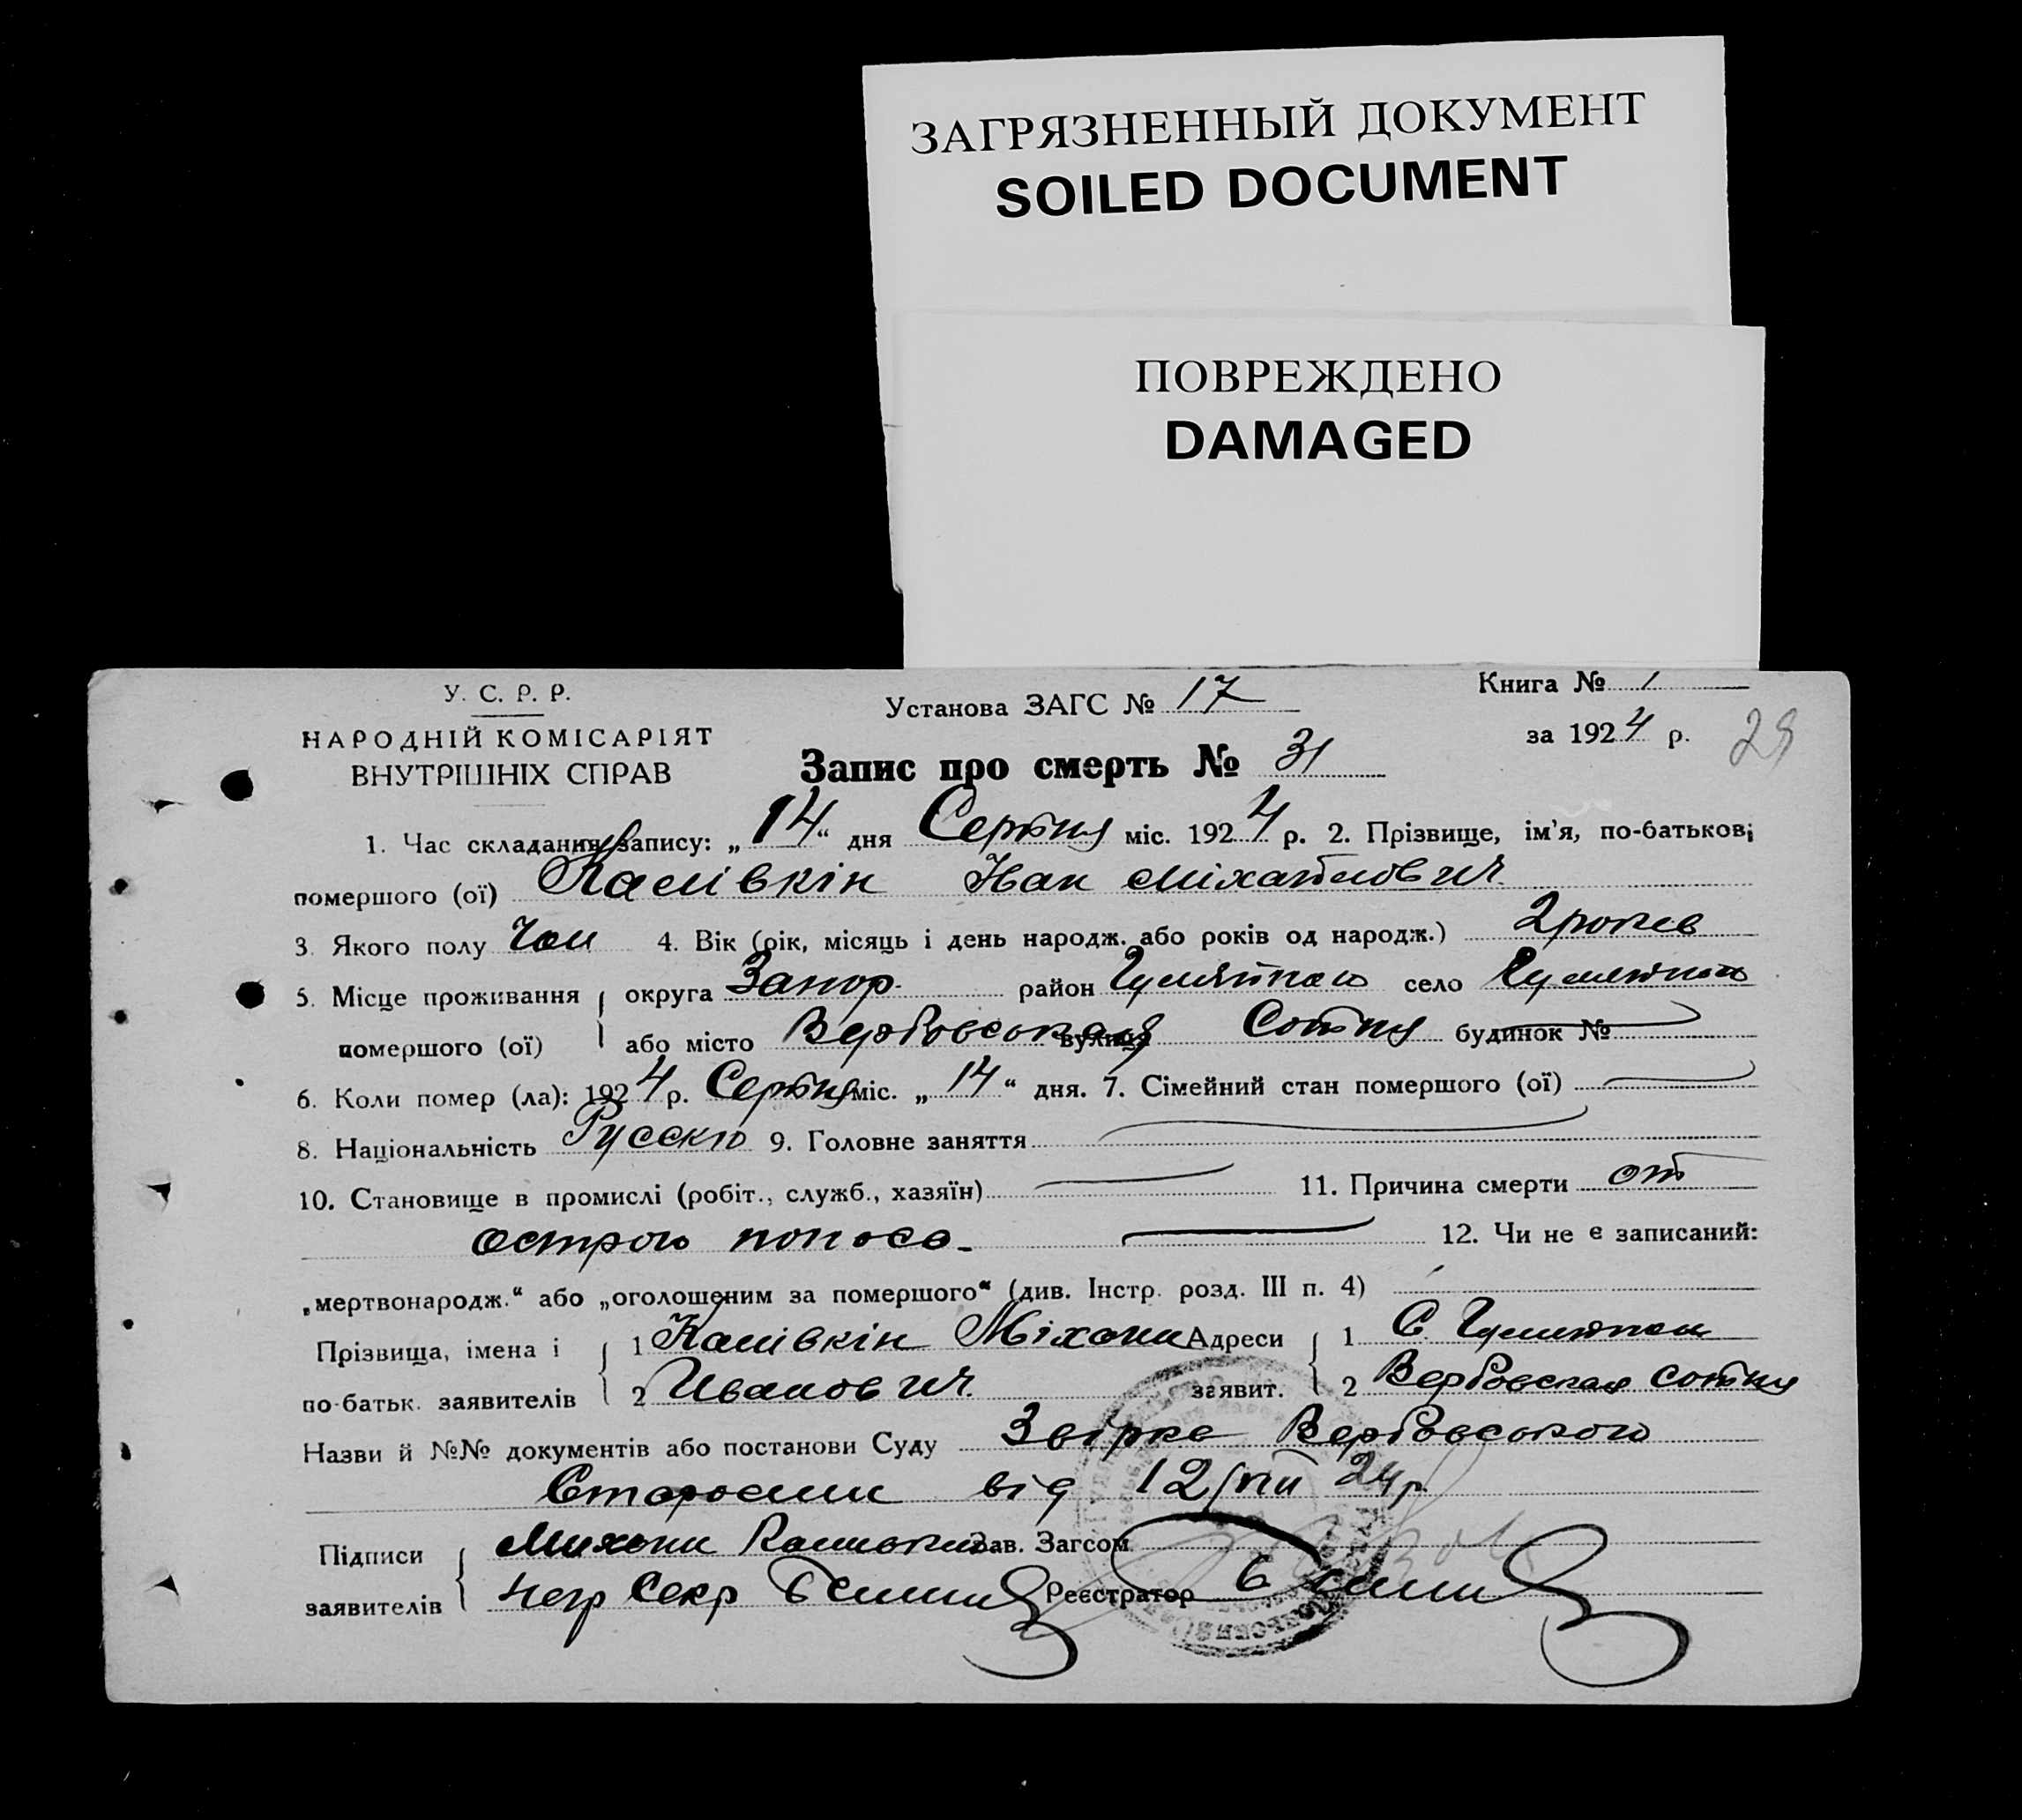 ЗАГРЯЗНЕННЫЙ ДОКУМЕНТ
SOILED DOCUMENT
ПОВРЕЖДЕНО
DAMAGED
У. С. Р. Р.
НАРОДНІЙ КОМІСАРІЯТ
ВНУТРІШНІХ СПРАВ
Установа ЗАГС № 17
Книга № 1
за 1924 р. 29
Запис про смерть № 31
1. Час складання запису: „14“ дня Серпня міс. 1924 р. 2. Прізвище, ім'я, по-батькові
помершого (ої) Калівкін Іван Міхайлович
3. Якого полу Чол 4. Вік (рік, місяць і день народж. або років од народж.) 2 років
5. Місце проживання помершого (ої) округа Запор. район Гуляйполе село Гуляйполе
або місто Вербовськая вулиця Сотня будинок №
6. Коли помер (ла): 1924 р. Серпня міс. „14“ дня. 7. Сімейний стан помершого (ої)
8. Національність 9. Головне заняття
10. Становище в промислі (робіт., служб., хазяїн) 11. Причина смерти от
острого поноса
12. Чи не є записаний:
„мертвонародж.“ або „оголошеним за помершого“ (див. Інстр. розд. III п. 4)
Прізвища, імена і по-батьк. заявителів 1 Калівкін Міхаил Адреси 1 С. Гуляйполе
2 Иванович заявит. 2 Вербовская сотня
Назви й №№ документів або постанови Суду Вербовського
від 12/VIII 24 р.
Підписи Михаил Зав. Загсом
заявителів Секр Реєстратор